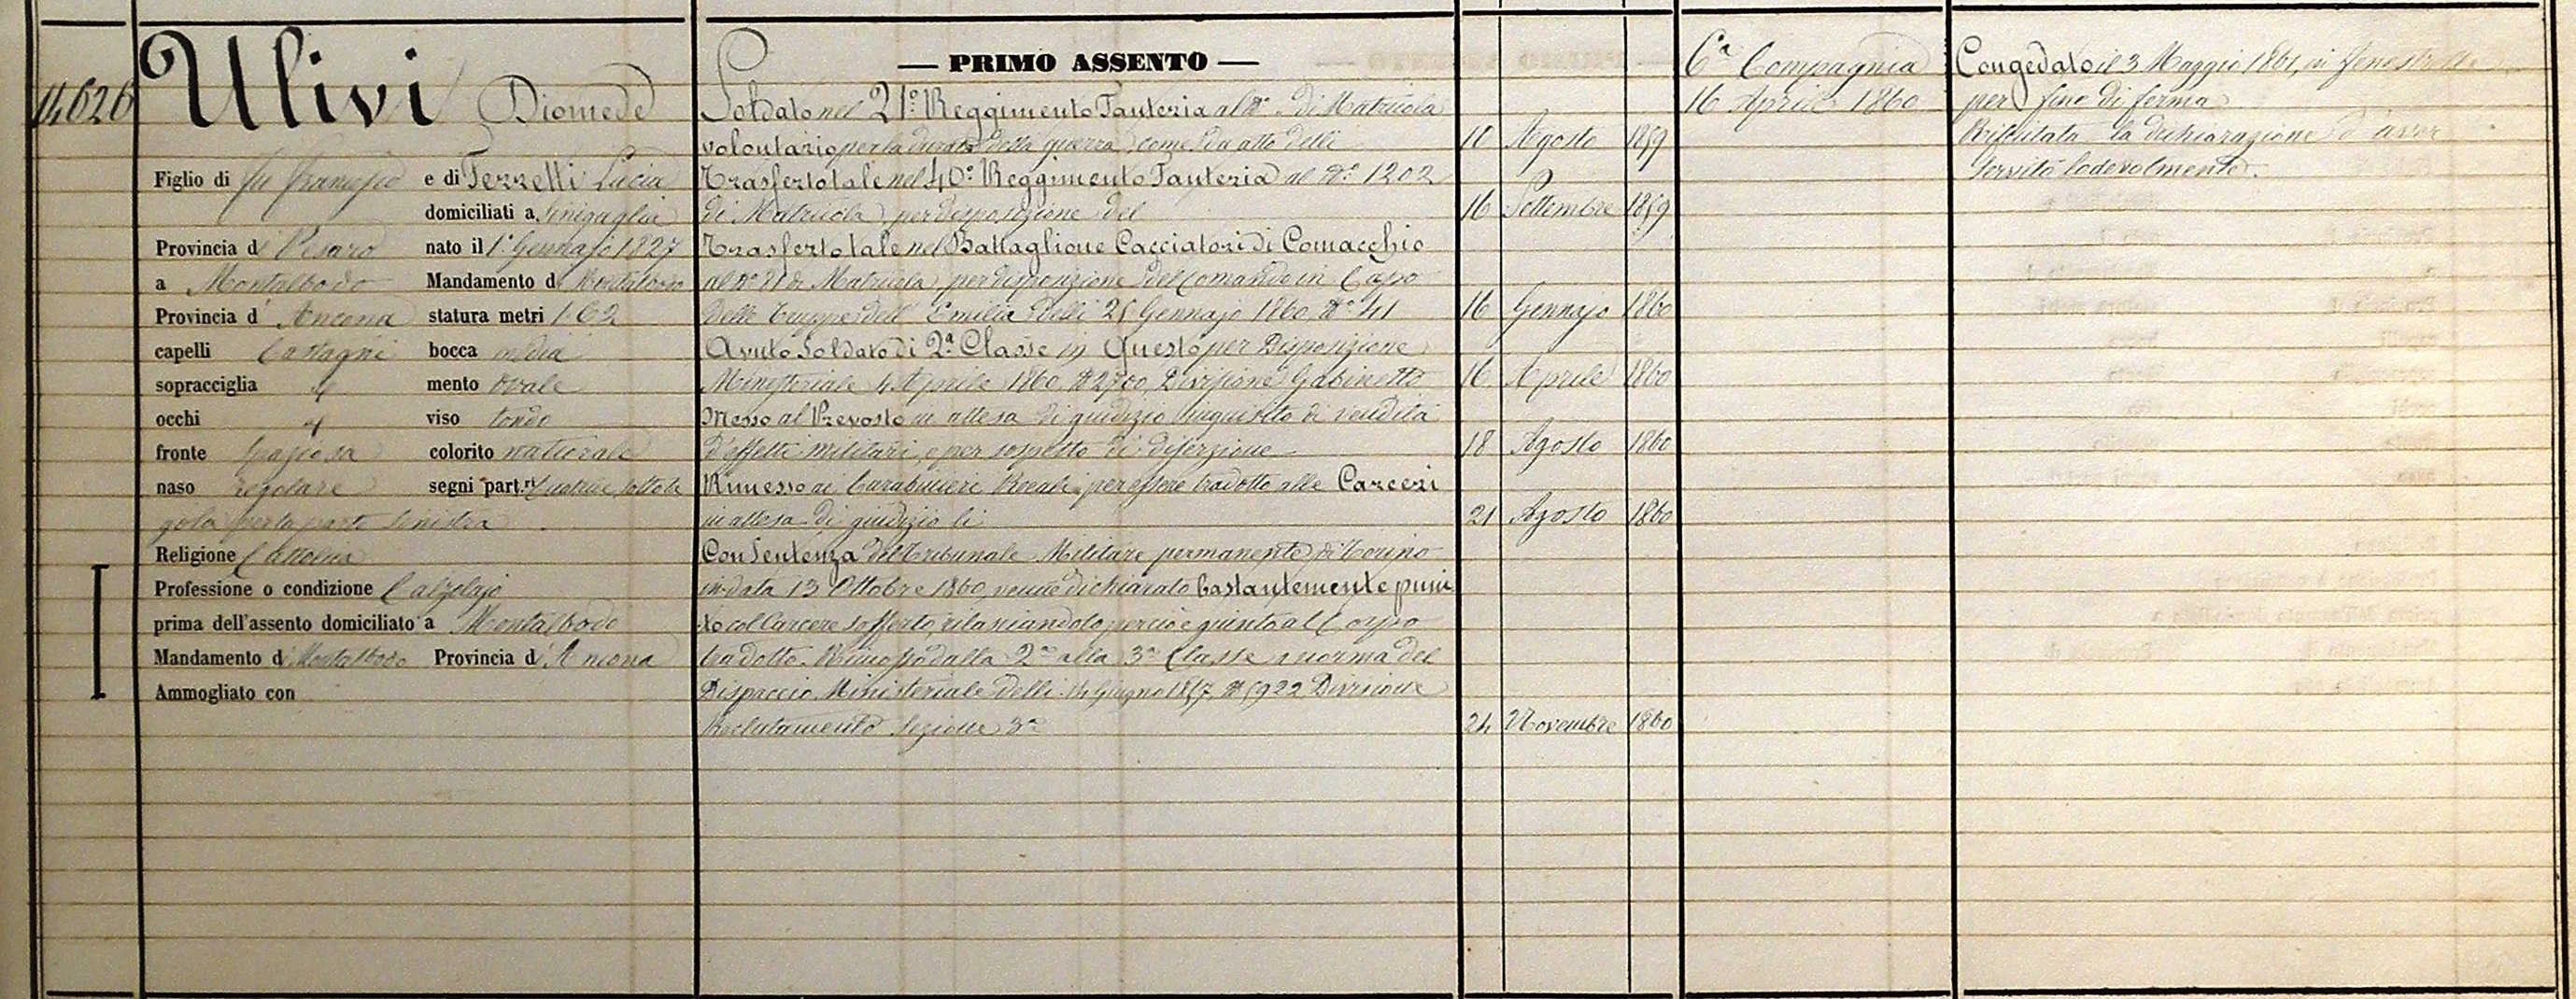 14626
Ulivi Diomede
Figlio di fu Francesco e di Terzetti Lucia
domiciliati a Sinigaglia
Provincia di Pesaro nato il 1° Gennajo 1827
a Montalbodo Mandamento di Montalbodo
Provincia d' Ancona statura metri 1.62
capelli Castagni bocca media
sopracciglia id mento ovale
occhi id viso tondo
fronte spaziosa colorito naturale
naso regolare segni part.ri Cicatrice sotto la
gola per la parte sinistra
Religione Cattolica
Professione o condizione Calzolajo
prima dell'assento domiciliato a Montalbodo
Mandamento di Montalbodo Provincia d' Ancona
Ammogliato con
— PRIMO ASSENTO —
Soldato nel 21° Reggimento Fanteria al N° di Matricola
volontario per la durata della guerra come da atto delli 10 Agosto 1859
Trasferto tale nel 40° Reggimento Fanteria al N° 1202
di Matricola per disposizione del 16 Settembre 1859
Trasferto tale nel Battaglione Cacciatori di Comacchio
al N° 81 di Matricola per disposizione del Comando in Capo
delle Truppe dell' Emilia delli 25 Gennajo 1860 N° 41 16 Gennajo 1860
Avuto Soldato di 2ª Classe in Questo per Disposizione
Ministeriale 4 Aprile 1860 N 2700 Divisione Gabinetto 16 Aprile 1860
Messo al Prevosto in attesa di giudizio inquisito di vendita
d'effetti militari, e per sospetto di diserzione 18 Agosto 1860
Rimesso ai Carabinieri Reali per essere tradotto alle Carceri
in attesa di giudizio li 21 Agosto 1860
Con Sentenza del Tribunale Militare permanente di Torino
in data 13 Ottobre 1860 venne dichiarato bastantemente puni
to col Carcere sofferto, rilasciandolo perciò e giunto al Corpo
tradotto. Rimosso dalla 2ª alla 3ª Classe a norma del
Dispaccio Ministeriale delli 14 Giugno 1857 N 5922 Divisione
Reclutamento Sezione 3ª 24 Novembre 1860
6ª Compagnia
16 Aprile 1860
Congedato il 3 Maggio 1861, in Fenestrelle
per fine di ferma
Rifiutata la dichiarazione d'aver
servito lodevolmente.